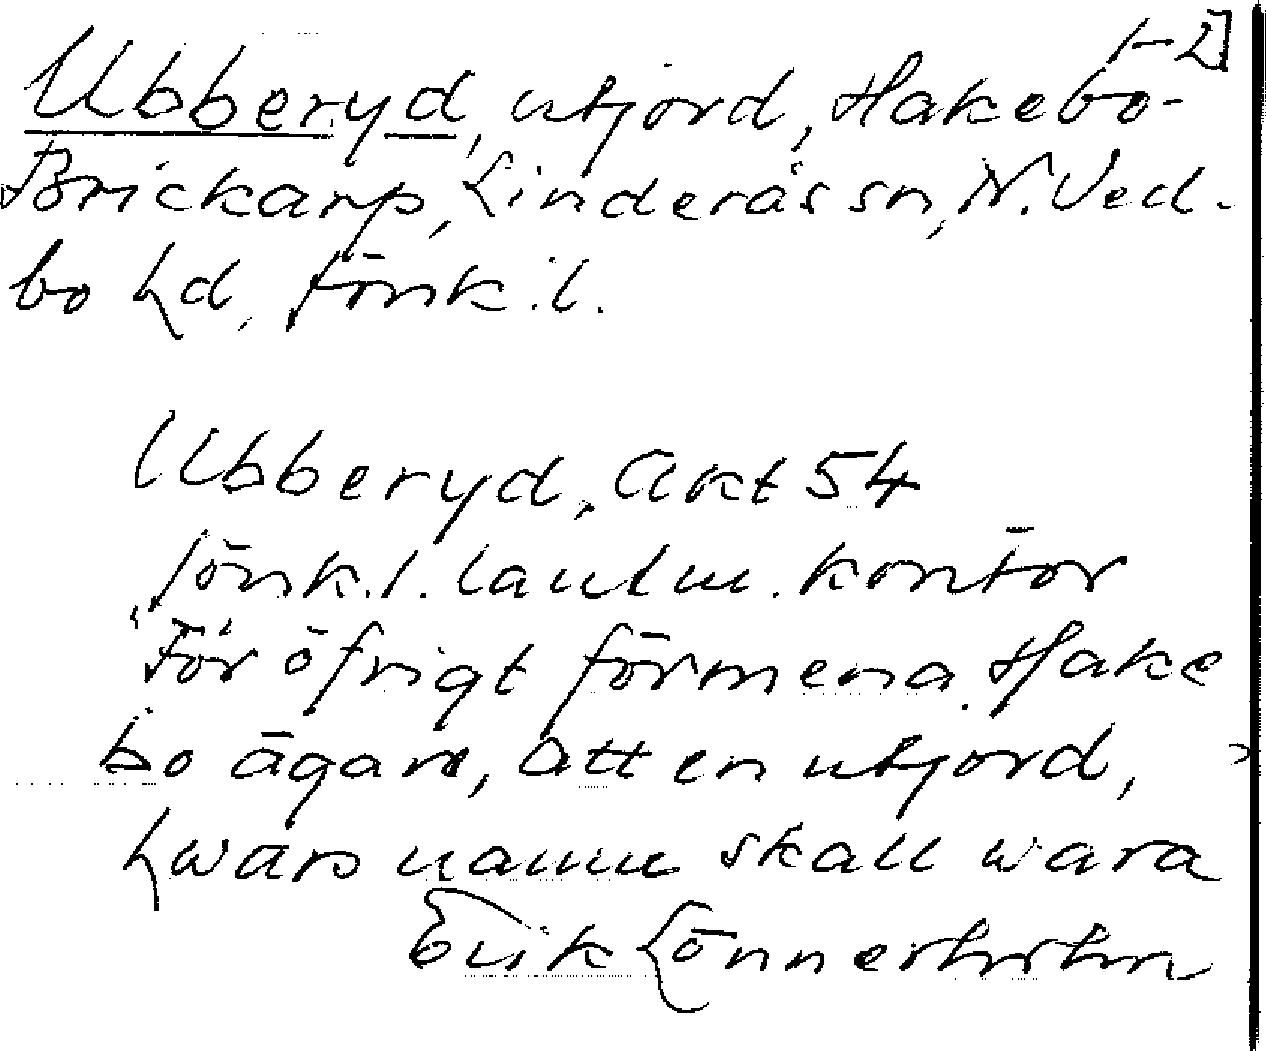 1-2]
Ubberyd, utjord, Hakebo-
Brickarp, Linderås sn, N. Ved-
bo hd, Jönk.l.
Ubberyd, Akt 54
Jönk.l. lantm. kontor
"För öfrigt förmena Hake
bo ägare, att en utjord,
hwars namn skall wara
Erik Lönnerholm